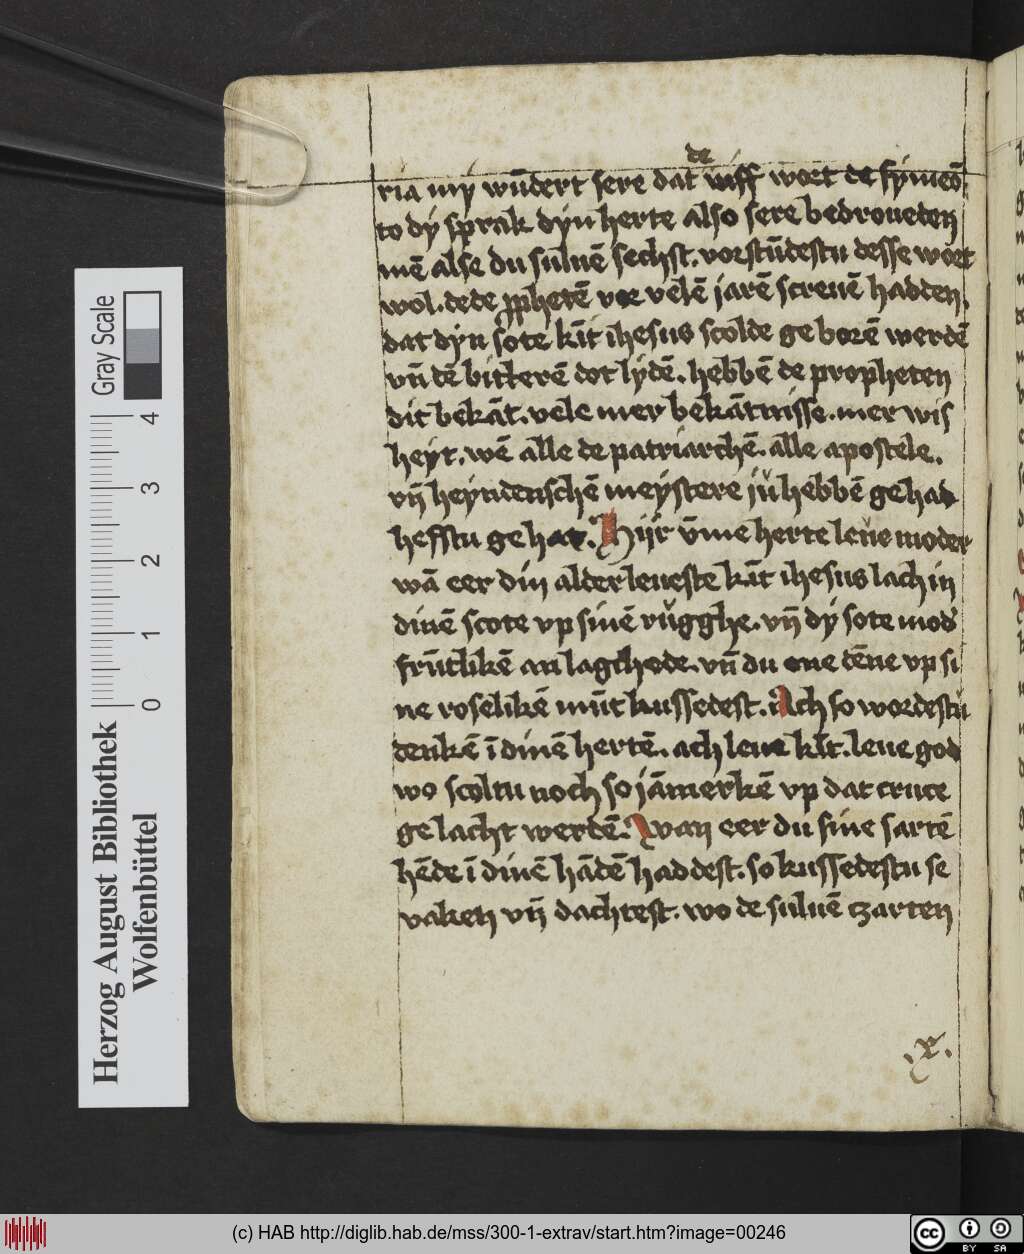 de
ria my wūdert sere dat viff wort de symeō
to dy sprak dyn herte also sere bedroueden
mē alse du suluē sechst. vorstūdestu desse wort
wol. dede ꝓphetē vor velē jarē screuē hadden.
dat dyn sote kīt ihesus scolde ge borē werdē
vn̄ dē bitterē dot lydē. hebbē de propheten
dit bekāt. vele mer bekātnisse. mer wis
heyt. wē alle de patriarchē. alle apostele.
vn̄ heyndenschē meystere ju hebbē ge had
hefftu ge hat. Hijr v̄me herte leue moder
wā eer din alderleueste kīt ihesus lach in
dinē scote vp sinē rugghe. vn̄ dy sote mod'
frūtlikē an lagchede. vn̄ du ene dēne vp si
ne roselikē mūt kussedest. Ach so wordestu
denkē ī dinē hertē. ach leue kīt. leue god
wo scoltu noch so jāmerkē vp dat cruce
ge lacht werdē. Wan eer du sine sartē
hēde ī dinē hādē haddest. so kussedestu se
vaken vn̄ dachtest. wo de suluē czarten
.x.
Gray Scale
4
3
2
1
0
Herzog August Bibliothek
Wolfenbüttel
(c) HAB http://diglib.hab.de/mss/300-1-extrav/start.htm?image=00246
cc
BY SA